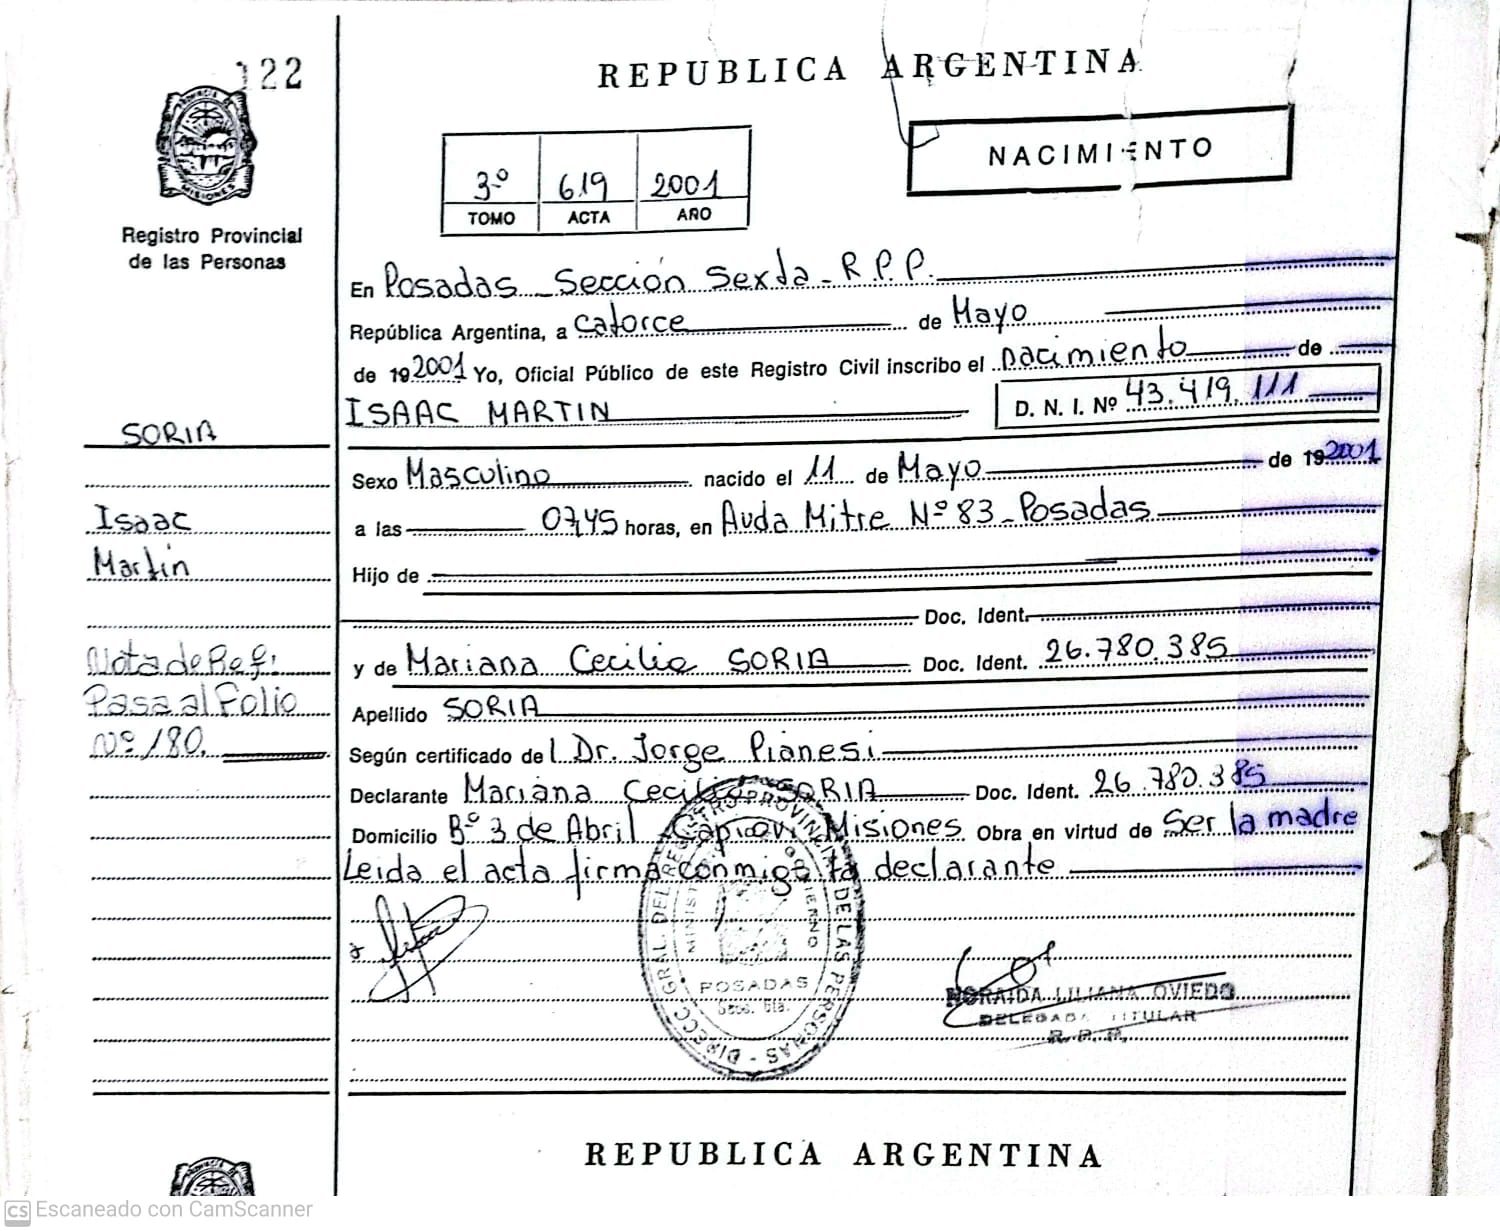 122
REPUBLICA ARGENTINA
PROVINCIA DE
MISIONES
Registro Provincial
de las Personas
3º 619 2001
TOMO ACTA AÑO
NACIMIENTO
En Posadas - Sección Sexta - R.P.P.
República Argentina, a catorce de Mayo
de 19 2001 Yo, Oficial Público de este Registro Civil inscribo el nacimiento de
ISAAC MARTIN D. N. I. Nº 43.419.111
SORIA
Sexo Masculino nacido el 11 de Mayo de 19 2001
Isaac
a las 07,45 horas, en Avda Mitre Nº 83 - Posadas
Martín
Hijo de
Doc. Ident.
Nota de Ref:
y de Mariana Cecilia SORIA Doc. Ident. 26.780.385
Pasa al Folio
Apellido SORIA
Nº 180.
Según certificado de l Dr. Jorge Pianesi
Declarante Mariana Cecilia SORIA Doc. Ident. 26.780.385
Domicilio Bº 3 de Abril - Capiovi - Misiones Obra en virtud de Ser la madre
Leida el acta firma conmigo la declarante
DIRECC. GRAL. DEL REGISTRO PROVINCIAL DE LAS PERSONAS
POSADAS
Secc. 6ta.
NORAIDA LILIANA OVIEDO
DELEGADA TITULAR
R. P. P.
REPUBLICA ARGENTINA
CS Escaneado con CamScanner